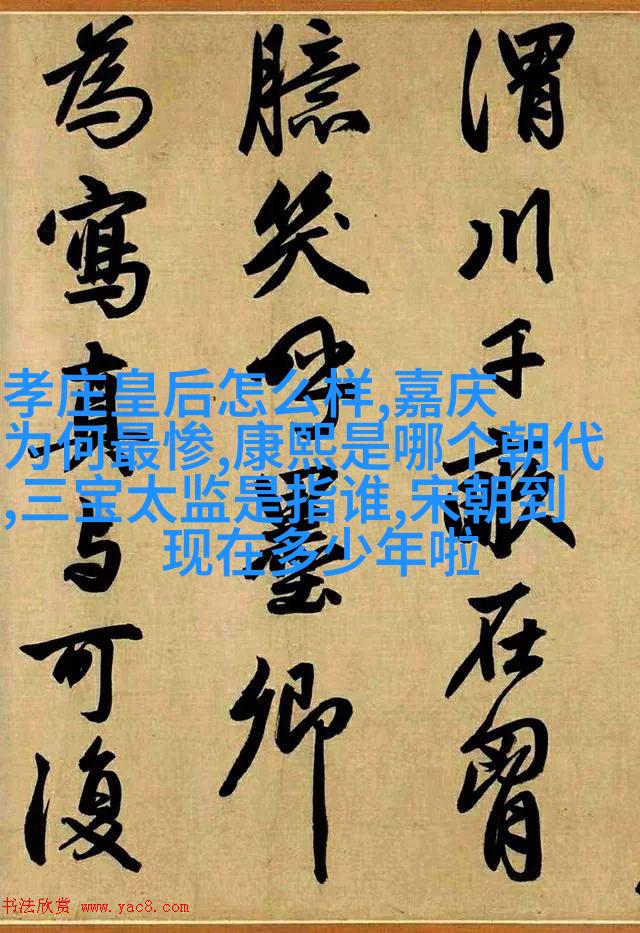 渭川千畝在胷
臆笑呼墨卿
為寫真与可復
孝庄皇后怎么样,嘉庆
为何最惨,康熙是哪个朝代
,三宝太监是指谁,宋朝到
现在多少年啦
书法欣赏 www.yac8.com